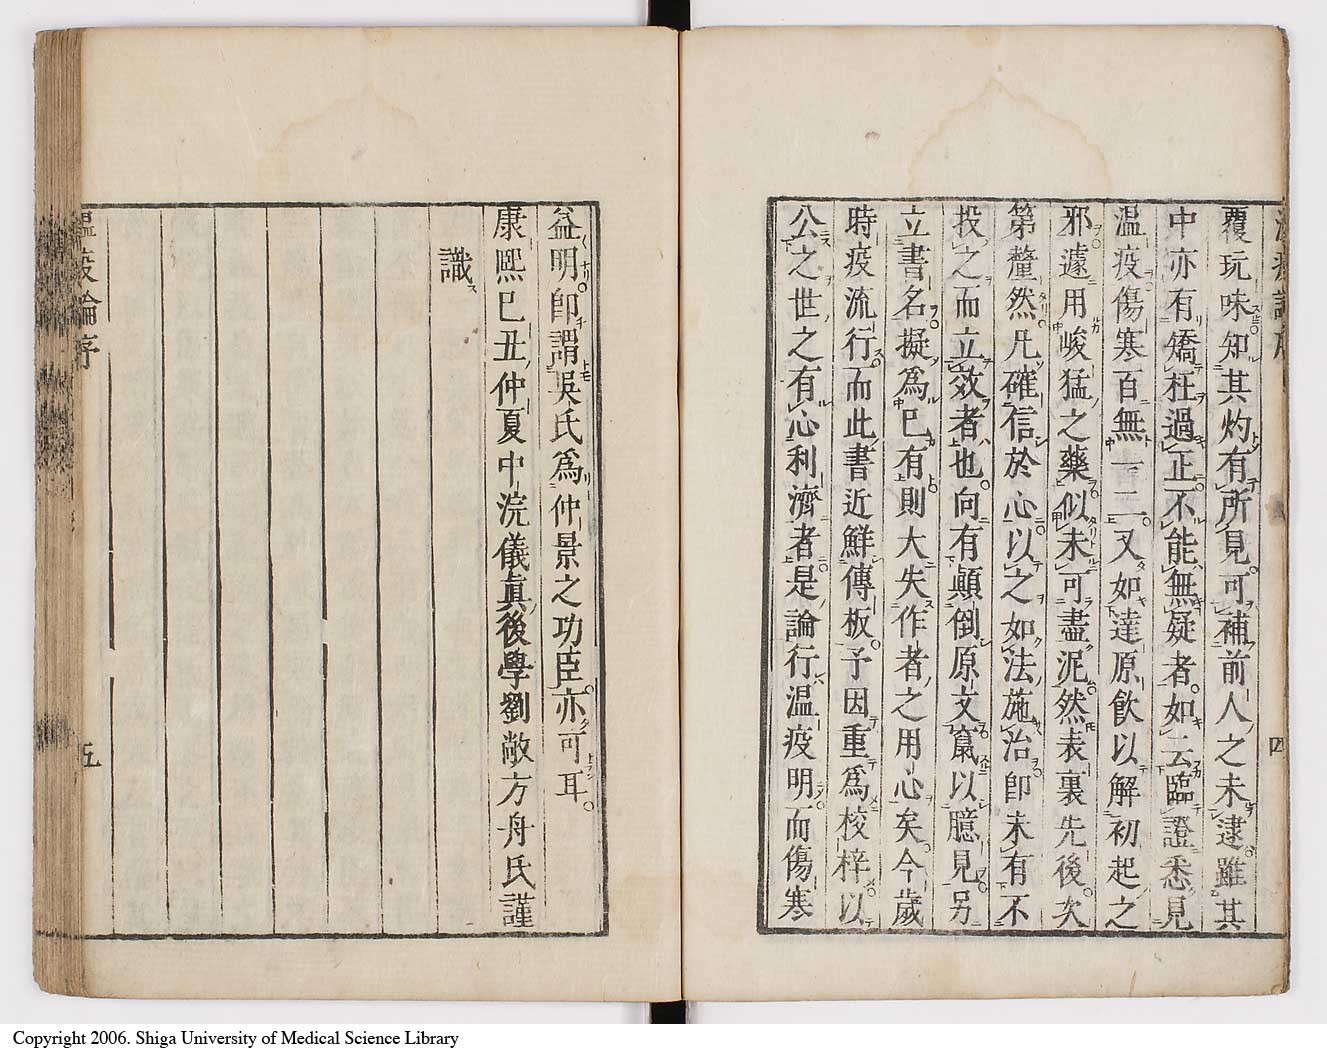 覆玩味知其灼有所見可補前人之未逮雖其
中亦有矯枉過正不能無疑者如云臨證悉見
溫疫傷寒百無一二又如達原飲以解初起之
邪遽用峻猛之藥似未可盡泥然表裏先後次
第釐然凡確信於心以之如法施治卽未有不
投之而立效者也向有顛倒原文竄以臆見另
立書名擬爲已有則大失作者之用心矣今歲
時疫流行而此書近鮮傳板予因重爲校梓以
公之世之有心利濟者是論行溫疫明而傷寒
四
益明卽謂吳氏爲仲景之功臣亦可耳
康熙己丑仲夏中浣儀眞後學劉敞方舟氏謹
識
溫疫論序
五
Copyright 2006. Shiga University of Medical Science Library